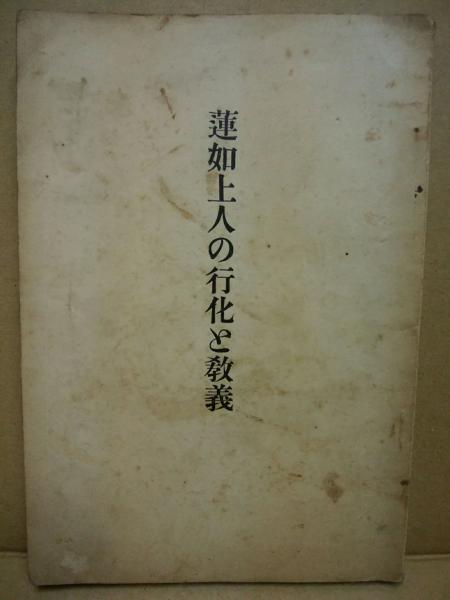 蓮如上人の行化と教義